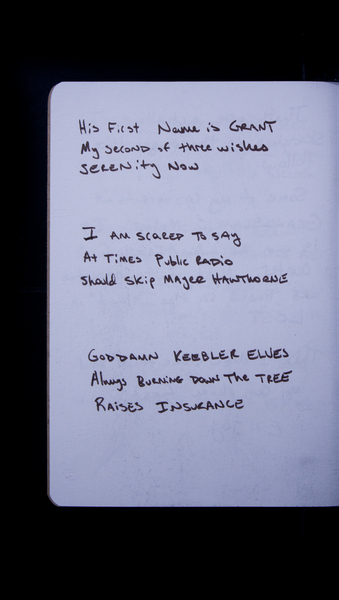 His First Name is GRANT
My second of three wishes
SERENity NOW
I AM SCARED TO SAY
At Times Public RADIO
Should Skip Mayer HAWTHORNE
GODDAMN KEEBLER ELVES
Always BURNING DOWN The TREE
RAISES INSURANCE